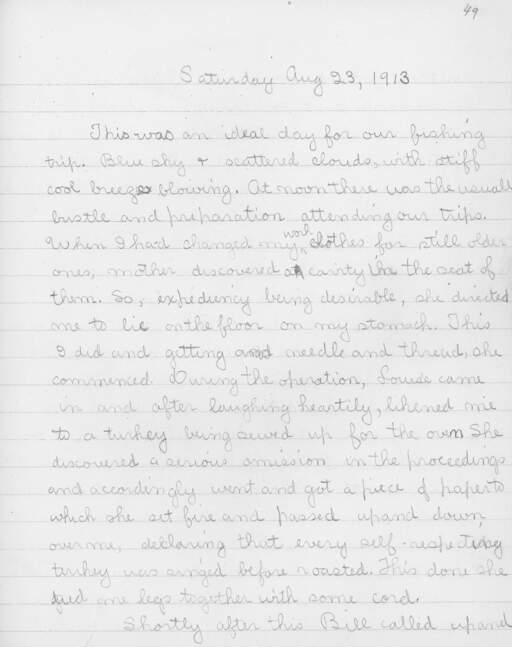 49
Saturday Aug 23, 1913
This was an ideal day for our fishing
trip. Blue sky & scattered clouds, with stiff
cool breeze blowing. At noon there was the usual
bustle and preparation attending our trips.
When I had changed my work clothes for still older
ones, mother discovered a cavity in the seat of
them. So, expediency being desirable, she directed
me to lie on the floor on my stomach. This
I did and getting needle and thread, she
commenced. During the operation, Louise came
in and after laughing heartily, likened me
to a turkey being sewed up for the oven She
discovered a serious omission in the proceedings
and accordingly went and got a piece of paper to
which she set fire and passed up and down
over me, declaring that every self-respecting
turkey was singed before roasted. This done she
tied me legs together with some cord.
Shortly after this Bill called up and